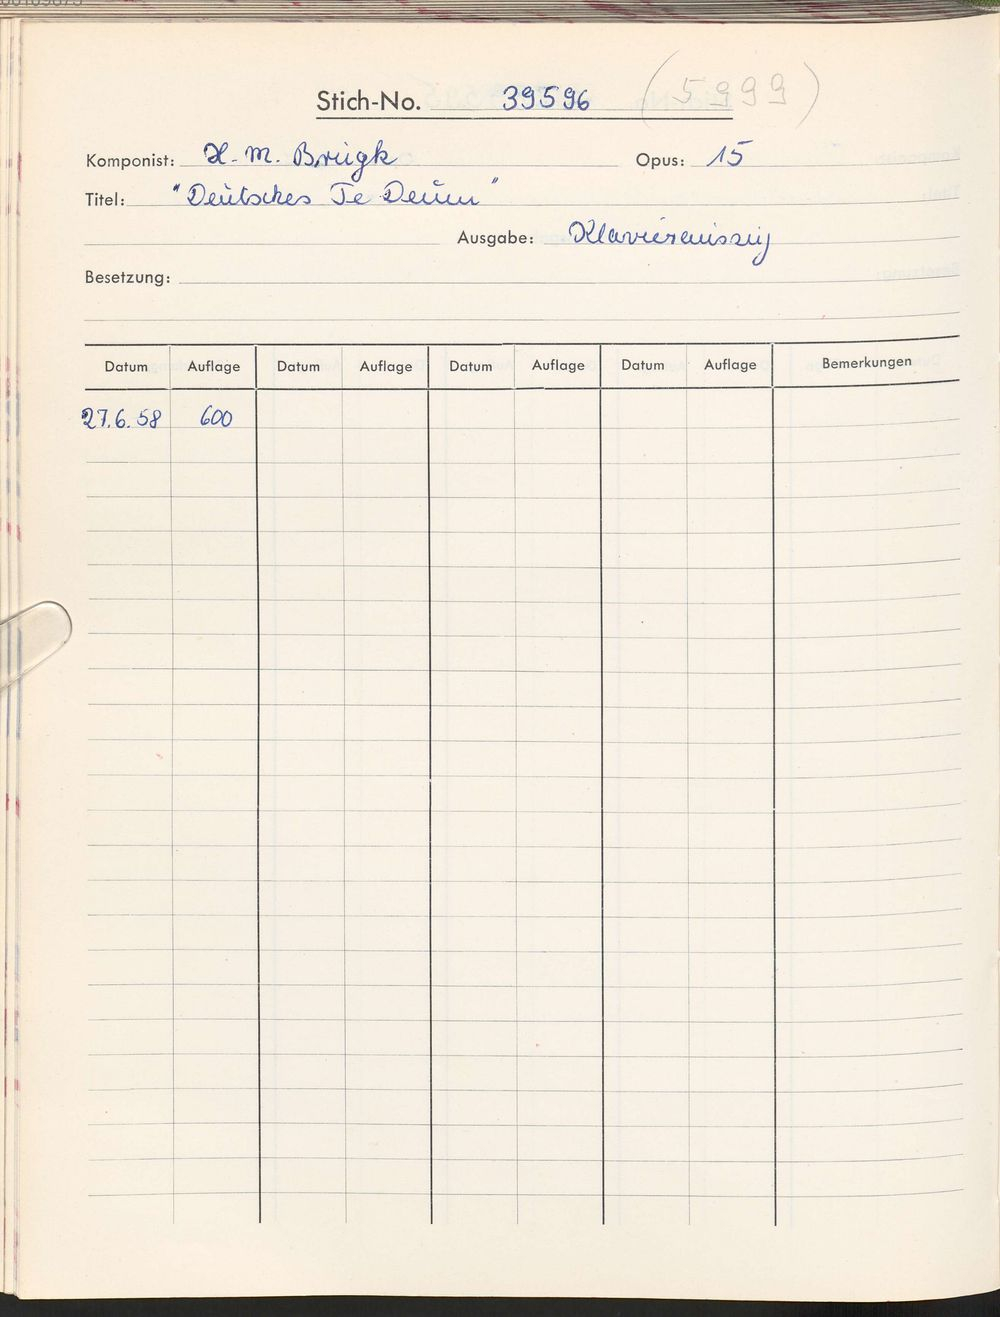 Stich-No. 39596 (5999)
Komponist: H. M. Brügk Opus: 15
Titel: "Deutsches Te Deum"
Ausgabe: Klavierauszug
Besetzung:
Datum Auflage Datum Auflage Datum Auflage Datum Auflage Bemerkungen
27.6.58 600